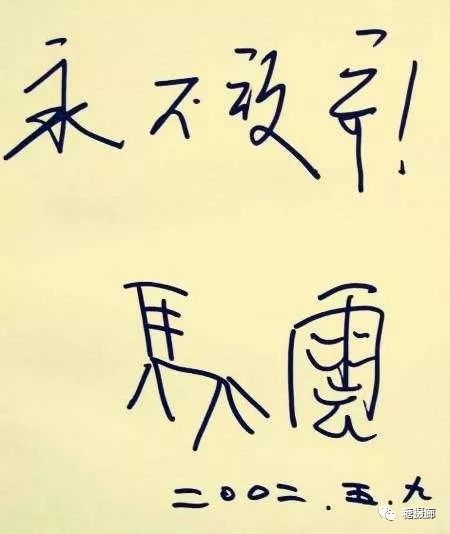 永不放弃!
馬雲
二〇〇二.五.九
糖摄师